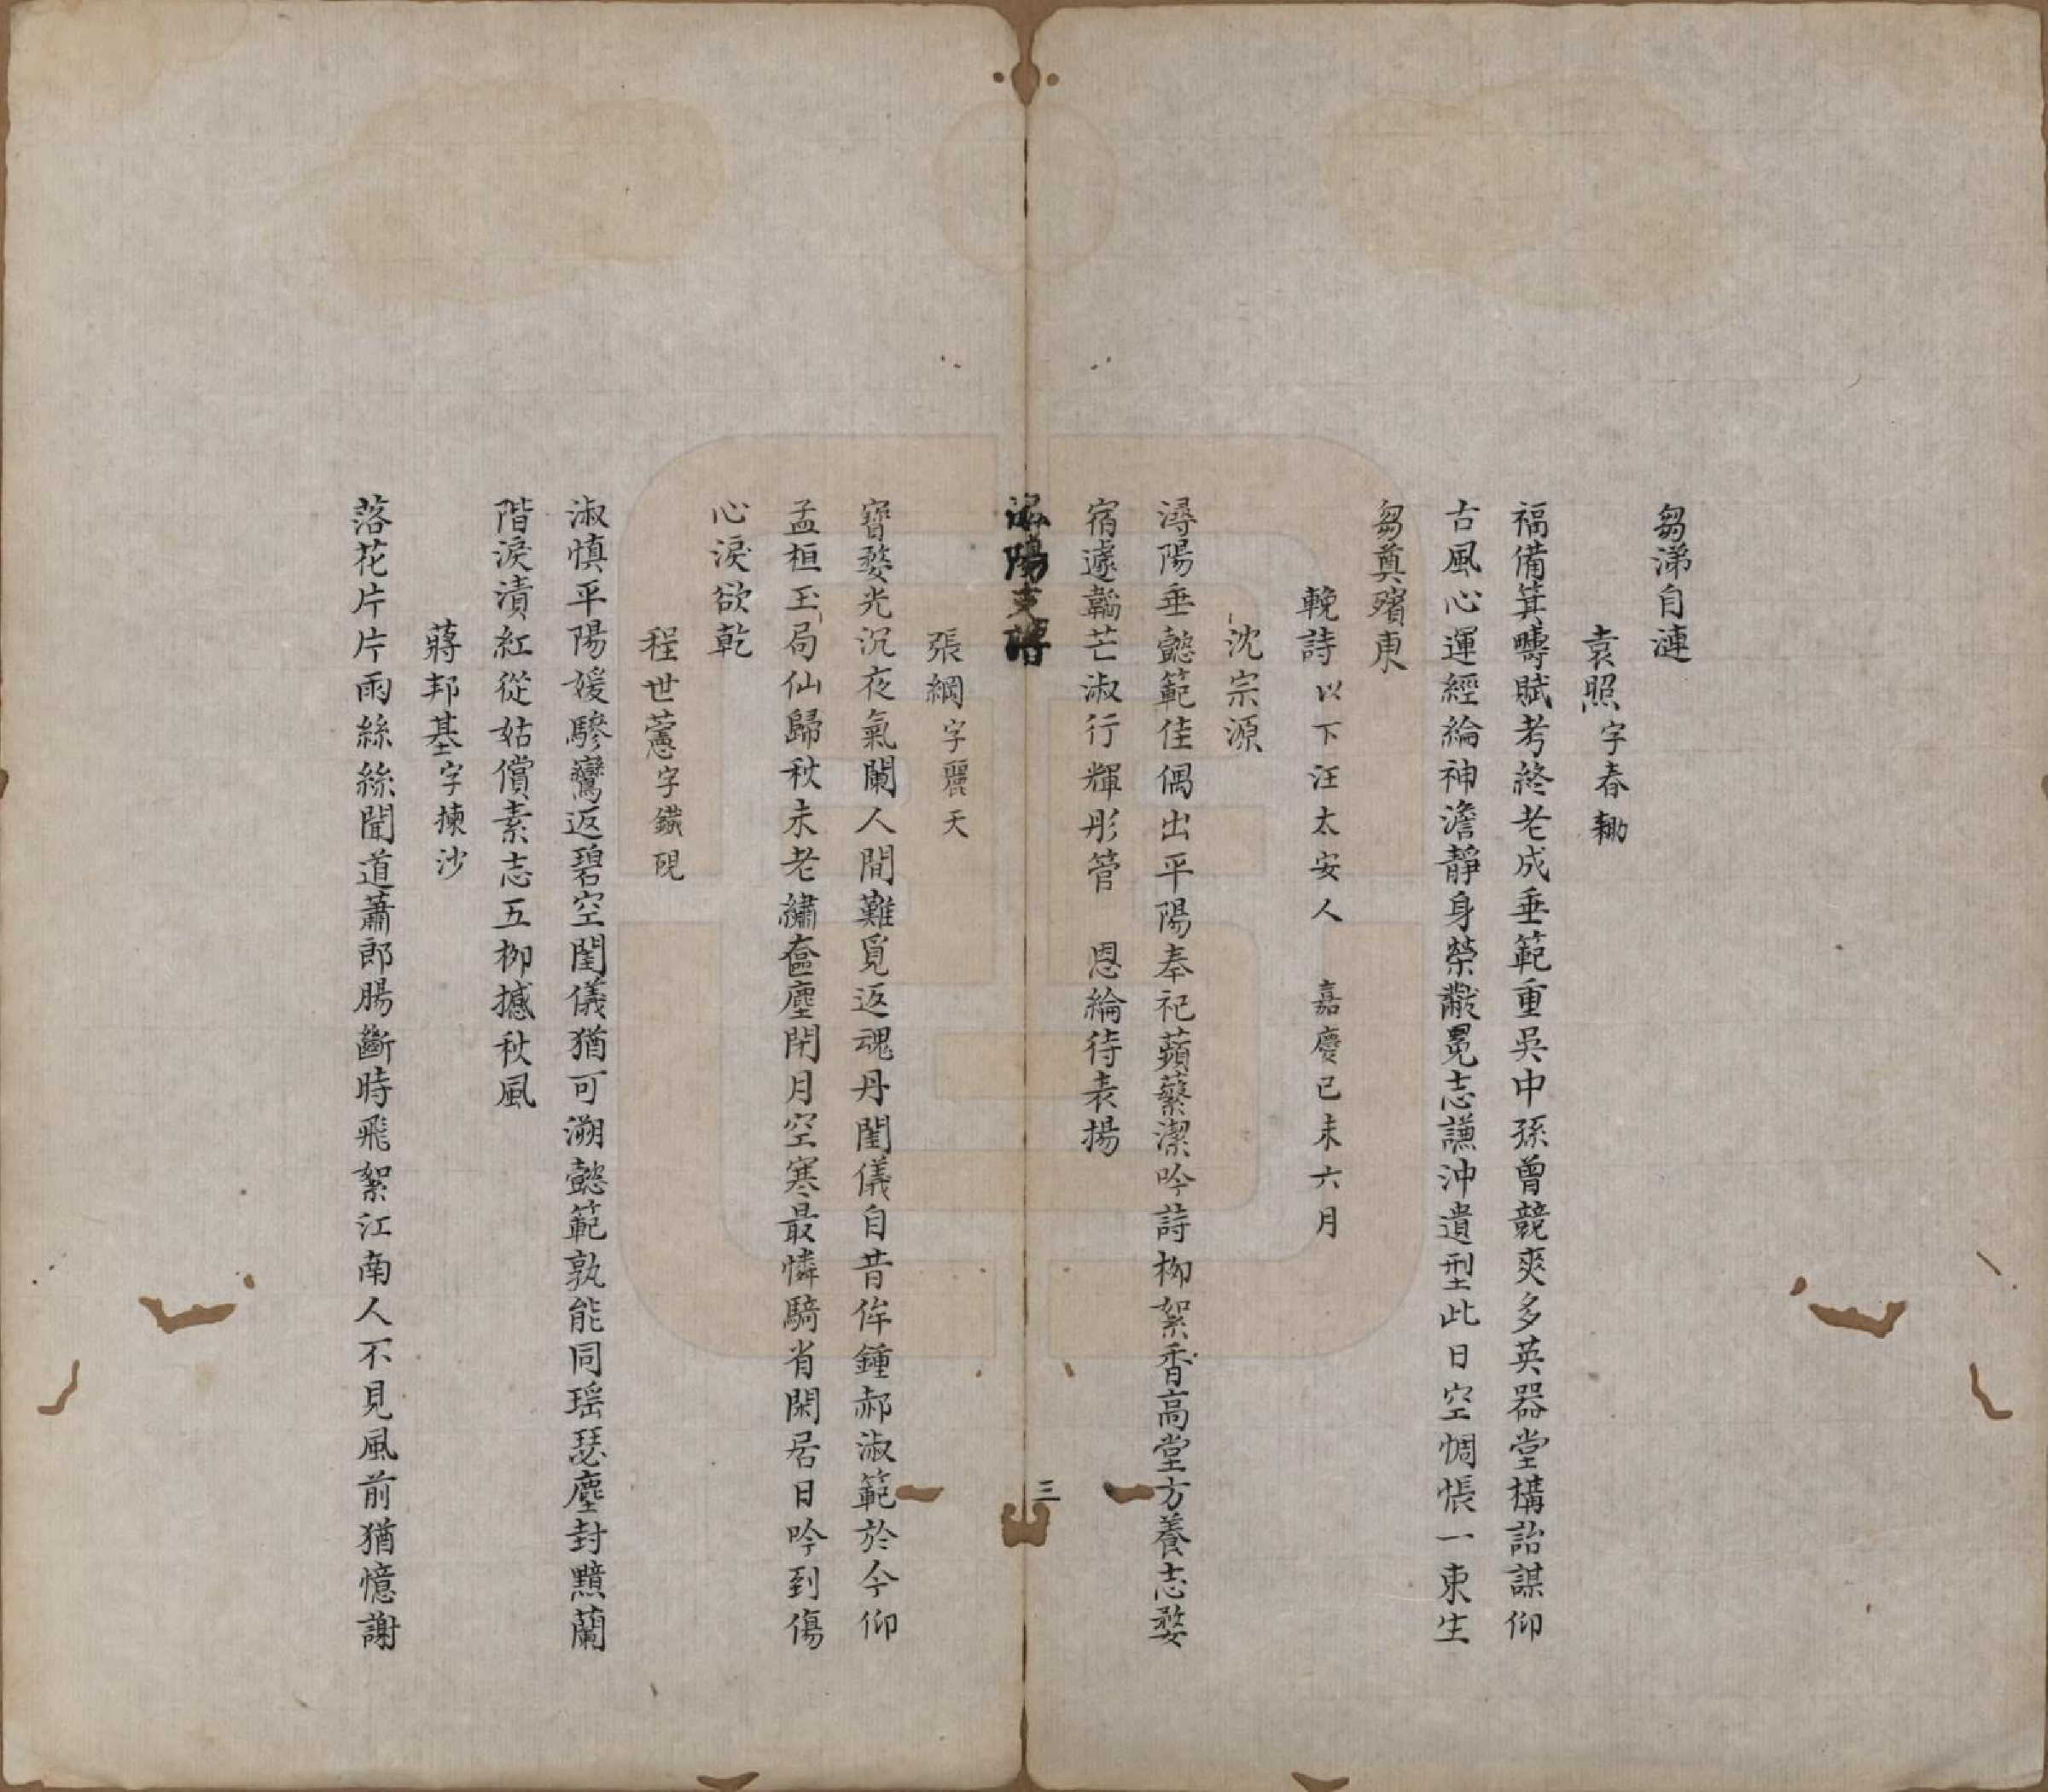 芻涕自漣
袁照字春耡
福備箕疇賦考終老成垂範重吳中孫曾競爽多英器堂構詒謀仰
古風心運經綸神澹靜身榮黻冕志謙沖遺型此日空惆悵一束生
芻奠殯東
輓詩以下汪太安人　嘉慶已未六月
沈宗源
潯陽垂懿範佳偶出平陽奉祀蘋蘩潔吟詩柳絮香高堂方養志婺
宿遽韜芒淑行輝彤管　恩綸待表揚
陽支譜
三
張綱字麗天
寶婺光沉夜氣闌人間難覓返魂丹閨儀自昔侔鍾郝淑範於今仰
孟桓玉局仙歸秋未老繡奩塵閉月空寒最憐騎省閑居日吟到傷
心淚欲乾
程世藼字鐵硯
淑慎平陽媛驂鸞返碧空閨儀猶可溯懿範孰能同瑶瑟塵封黯蘭
階淚漬紅從姑償素志五柳撼秋風
蔣邦基字揀沙
落花片片雨絲絲聞道蕭郎腸斷時飛絮江南人不見風前猶憶謝